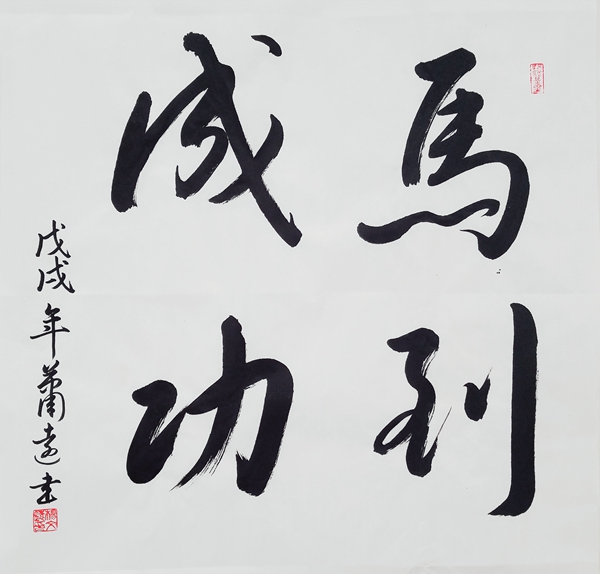 馬到
成功
戊戌年蕭遠書